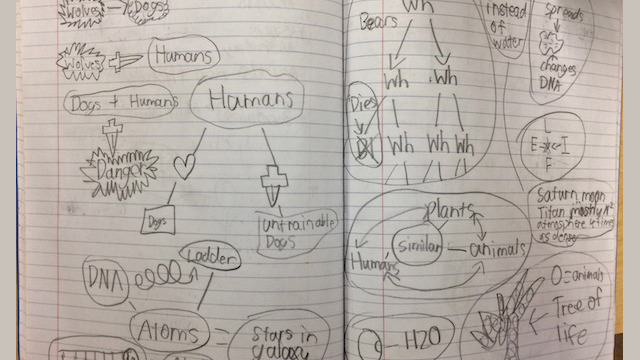 Wolves
Dogs
Wolves
Humans
Dogs + Humans
Humans
Danger
Dogs
untrainable
Dogs
Ladder
DNA
Atoms
=
stars in
galaxy
Wh
Bears
Wh
Wh
Dies
Wh
Wh
Wh
plants
Similar
animals
Humans
H2O
instead
of
water
spreads
changes
DNA
L
E
I
F
Saturn moon
Titan mostly
atmosphere 4 times
as dense
O=animals
Tree of
life